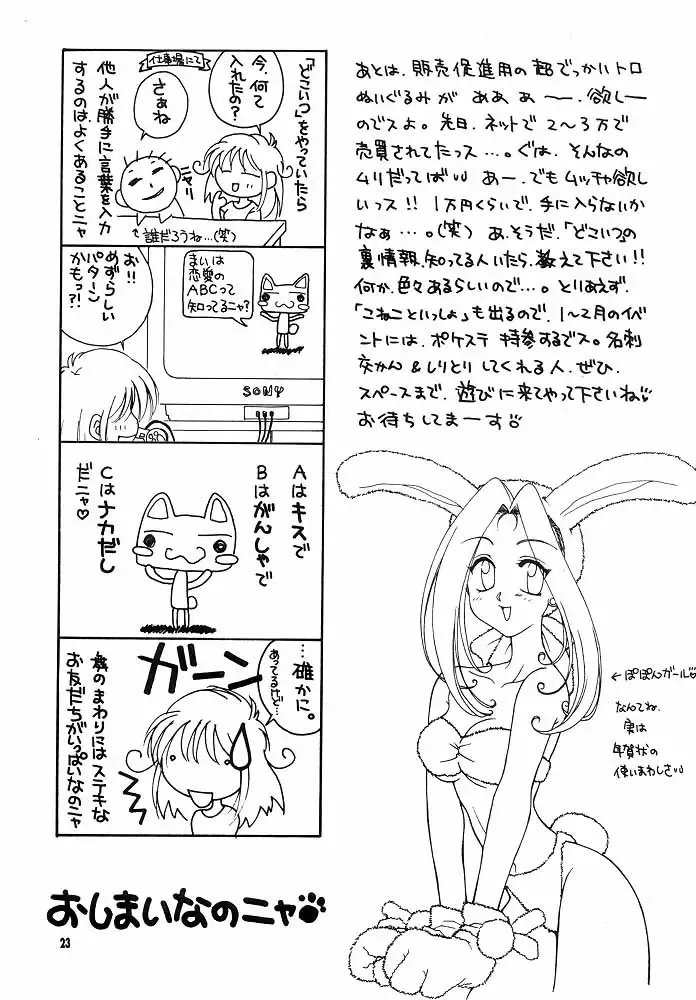 あとは、販売促進用の超でっかいトロ
ぬいぐるみが ああ あ〜、欲しー
のでスよ。先日、ネットで 2〜3万で
売買されてたっス…。ぐは、そんなの
ムリだってばvv あー、でもムッチャ欲し
いっス!! 1万円くらいで、手に入らないか
なぁ…。(笑) あ、そうだ、「どこいつ」の
裏情報、知ってる人いたら、教えて下さい!!
何か、色々あるらしいので…。とりあえず、
「こねこといっしょ」も出るので、1〜2月のイベ
ントには、ポケステ 持参するでス。名刺
交かん&しりとり してくれる人、ぜひ、
スペースまで、遊びに来てやって下さいね
お待ちしてまーす
「どこいつ」をやっていたら
他人が勝手に言葉を入力
するのはよくあることニャ
仕事場にて
今、何て
入れたの?
さぁね
ニヤリ
↑誰だろうね…(笑)
まいは
恋愛の
ABCって
知ってるニャ?
お!!
めずらしい
パターン
かもっ?!
SONY
Aはキスで
Bはがんしゃで
Cはナカだし
だニャ♡
…確かに。
あってるけど…
ガーン
僕のまわりにはステキな
お友だちがいっぱいなのニャ
←ぽぽんガール♡
なんてね。
実は
年賀状の
使いまわしさvv
おしまいなのニャ
23